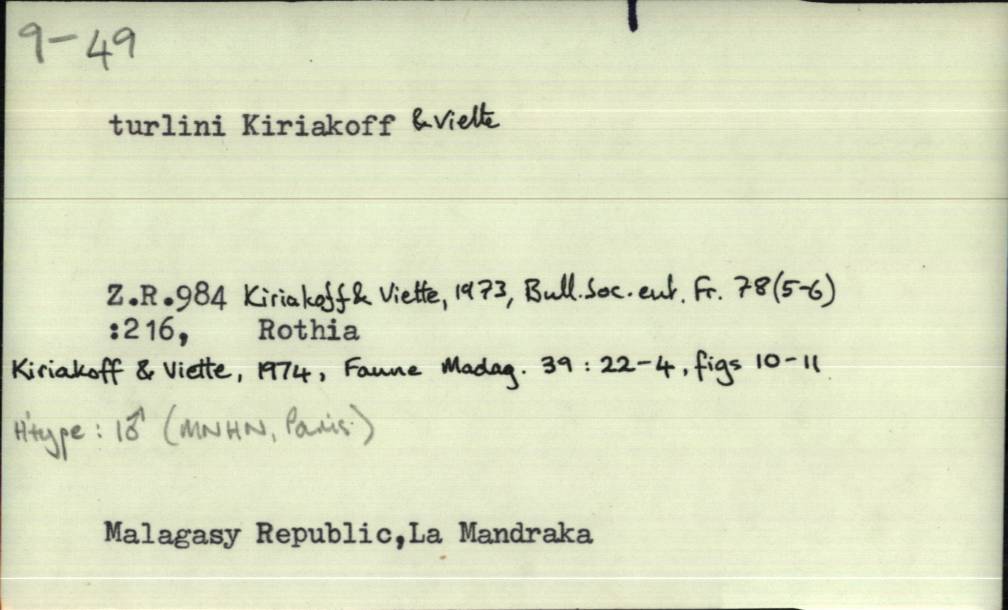 9-49
turlini Kiriakoff & Viette
Z.R.984 Kiriakoff & Viette, 1973, Bull. Soc. ent. Fr. 78(5-6)
:216, Rothia
Kiriakoff & Viette, 1974, Faune Madag. 39 : 22-4, figs 10-11
H'type : 1♂ (MNHN, Paris.)
Malagasy Republic,La Mandraka